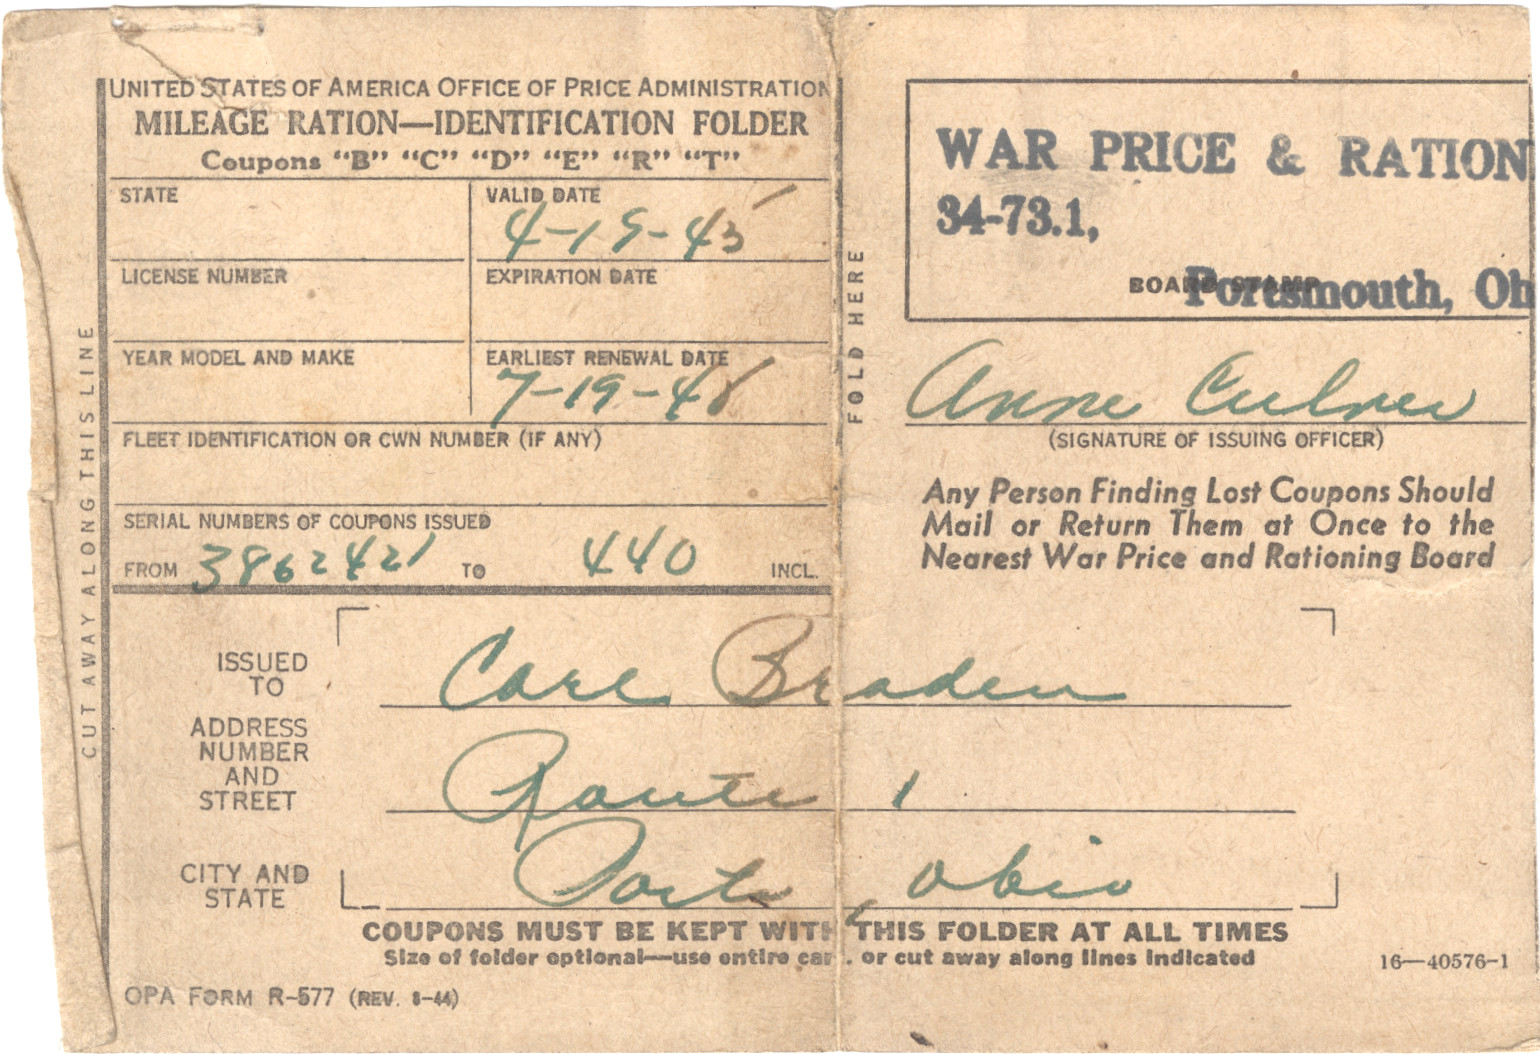 UNITED STATES OF AMERICA OFFICE OF PRICE ADMINISTRATION
MILEAGE RATION—IDENTIFICATION FOLDER
Coupons "B" "C" "D" "E" "R" "T"
STATE
VALID DATE
4-19-45
LICENSE NUMBER
EXPIRATION DATE
YEAR MODEL AND MAKE
EARLIEST RENEWAL DATE
7-19-45
FLEET IDENTIFICATION OR CWN NUMBER (IF ANY)
SERIAL NUMBERS OF COUPONS ISSUED
FROM 3862421 TO 440 INCL.
CUT AWAY ALONG THIS LINE
FOLD HERE
WAR PRICE & RATION
34-73.1,
BOARD STAMP
Portsmouth, Oh
Anne Culver
(SIGNATURE OF ISSUING OFFICER)
Any Person Finding Lost Coupons Should
Mail or Return Them at Once to the
Nearest War Price and Rationing Board
ISSUED
TO
Carl Braden
ADDRESS
NUMBER
AND
STREET
Route 1
CITY AND
STATE
Ports, Ohio
COUPONS MUST BE KEPT WITH THIS FOLDER AT ALL TIMES
Size of folder optional—use entire card, or cut away along lines indicated
16—40576-1
OPA FORM R-577 (REV. 8-44)